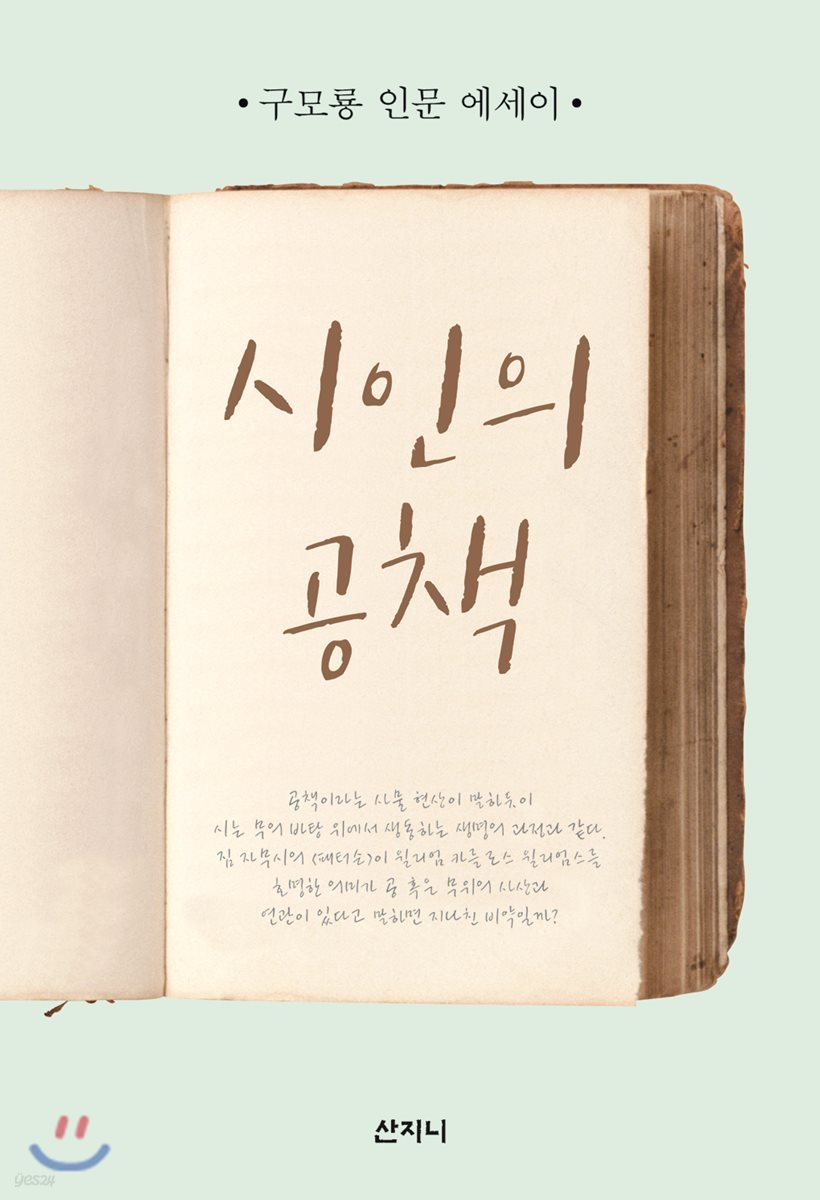 • 구모룡 인문 에세이 •
시인의
공책
공책이라는 사물 현상이 말하듯이
시는 무의 바탕 위에서 생동하는 생명의 과정과 같다.
짐 자무시의 <패터슨>이 윌리엄 카를로스 윌리엄스를
호명한 의미가 공 혹은 무위의 사상과
연관이 있다고 말하면 지나친 비약일까?
산지니
yes24